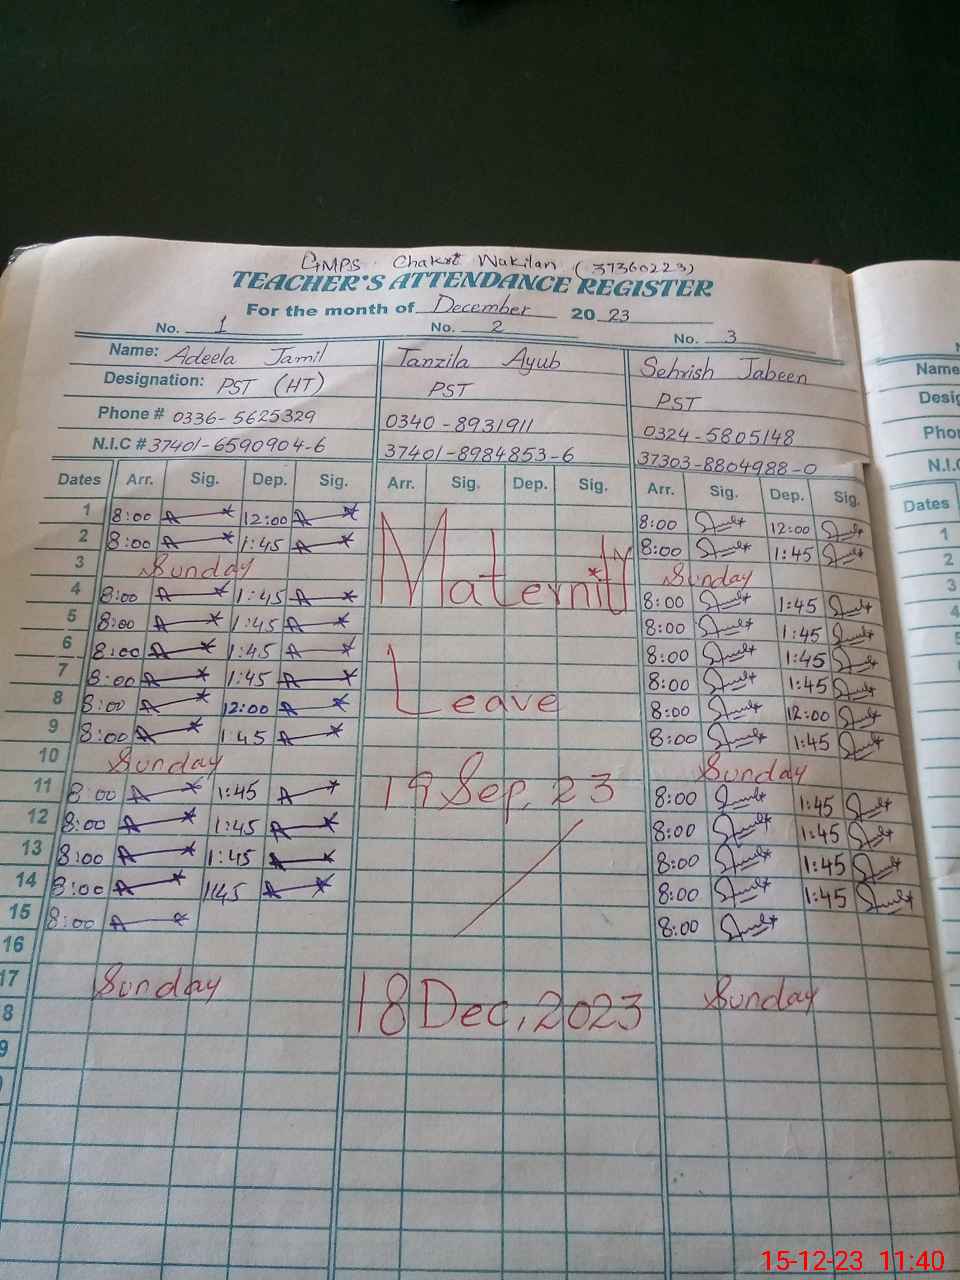 GMPS Chakri Wakilan (37360223)
TEACHER'S ATTENDANCE REGISTER
For the month of December 2023
No. 1 No. 2 No. 3
Name: Adeela Jamil Tanzila Ayub Sehrish Jabeen Name
Designation: PST (HT) PST PST
Phone # 0336-5625329 0340-8931911 0324-5805148
N.I.C # 37401-6590904-6 37401-8984853-6 37303-8804988-0 N.I.C
Dates Arr. Sig. Dep. Sig. Arr. Sig. Dep. Sig. Arr. Sig. Dep. Sig. Dates
1 8:00 12:00 8:00 12:00 1
2 8:00 1:45 8:00 1:45 2
3 Sunday Sunday 3
Maternity
4 8:00 1:45 8:00 1:45 4
5 8:00 1:45 8:00 1:45
6 8:00 1:45 8:00 1:45
7 8:00 1:45 8:00 1:45
Leave
8 8:00 12:00 8:00 12:00
9 8:00 1:45 8:00 1:45
10 Sunday Sunday
11 8:00 1:45 19 Sep, 23 8:00 1:45
12 8:00 1:45 8:00 1:45
13 8:00 1:45 8:00 1:45
14 8:00 1:45 8:00 1:45
15 8:00 8:00
16
17 Sunday 18 Dec, 2023 Sunday
8
9
15-12-23 11:40